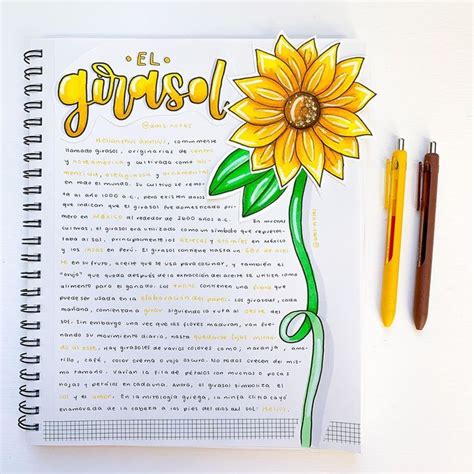 • EL •
girasol
Helianthus annuus, comúnmente
llamado girasol, originarias de centro
y norteamérica y cultivada como ali-
menticia, oleaginosa y ornamental
en todo el mundo. Su cultivo se remon-
ta al año 1000 a.C., pero existen datos
que indican que el girasol fue domesticado pri-
mero en México al rededor de 2600 años a.C.
culturas, el girasol era utilizado como un símbolo que represen-
taba al sol, principalmente los aztecas y otomíes en México
y los incas en Perú. El girasol contiene hasta un
en su fruto, aceite que se usa para cocinar, y también el
"orujo" que queda después de la extracción del aceite se utiliza como
alimento para el ganado. Los tallos contienen una fibra que
puede ser usada en la elaboración del papel. Los girasoles, cada
mañana, comienzan a girar siguiendo la ruta al oeste del
sol. Sin embargo una vez que las flores maduran, van fre-
nando su movimiento diario, hasta quedarse fijas miran-
do al este. Hay girasoles de varios colores como, naranja, ama-
rillo, café, color crema o rojo oscuro. No todos crecen del mis-
mo tamaño. Varían la fila de pétalos con muchas o pocas
hojas y pétalos en cada una. Ahora, el girasol simboliza el
sol y el amor. En la mitología griega, la ninfa Clitia cayó
enamorada de la cabeza a los pies del dios del sol: Helios.